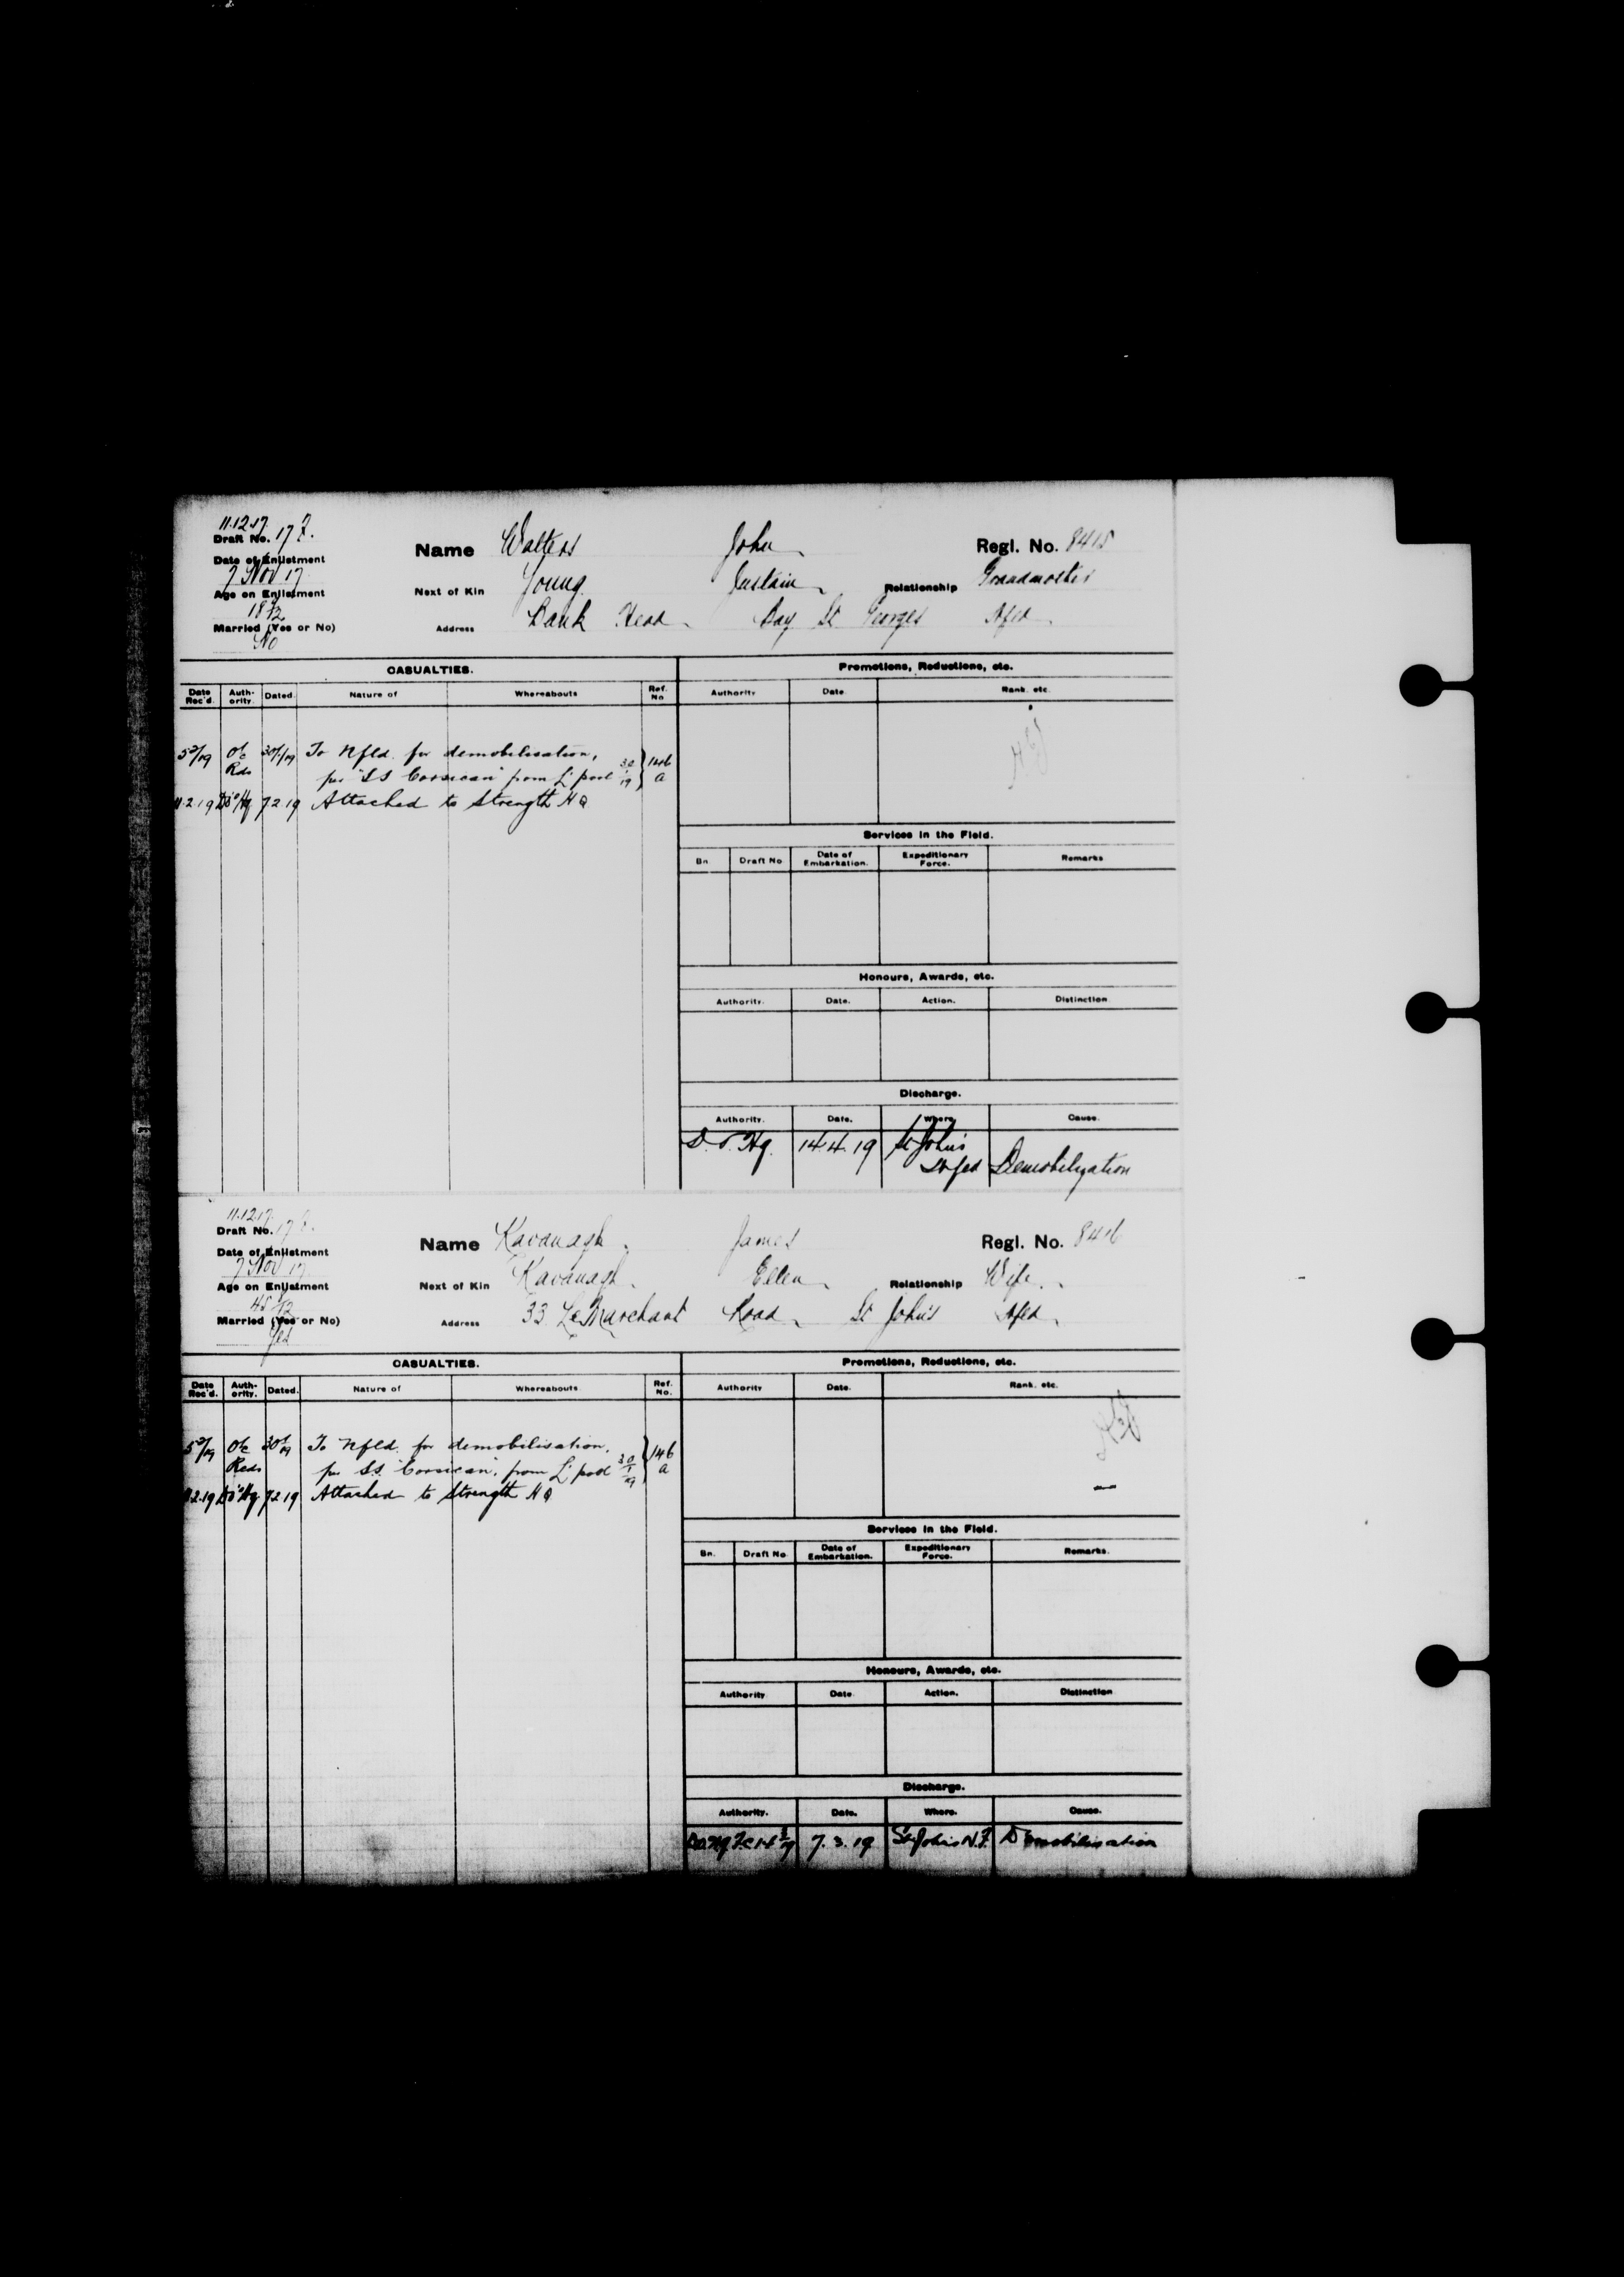 11.12.17.
Draft No. 17 F.
Date of Enlistment
7 Nov 17
Age on Enlistment
18
Married (Yes or No)
No
Name Walters John Regl. No. 8415
Next of Kin Young Relationship Grandmother
Address Bank Head Bay St Georges Nfld
CASUALTIES. Promotions, Reductions, etc.
Date Rec'd. Auth-ority. Dated. Nature of Whereabouts Ref. No Authority Date. Rank. etc.
5/2/19 O/c 30/1/19 To Nfld. for demobilisation, 146
Rds per "SS Corsican" from L'pool 30/1/19 A
11.2.19 7.2.19 Attached to Strength H Q
Services in the Field.
Bn. Draft No Date of Embarkation. Expeditionary Force. Remarks
Honours, Awards, etc.
Authority. Date. Action. Distinction
Discharge.
Authority. Date. Where. Cause.
D.O. Hq. 14.4.19 St John's Nfld Demobilization
11.12.17.
Draft No. 17 F.
Date of Enlistment
7 Nov 17.
Age on Enlistment
45
Married (Yes or No)
Yes
Name Kavanagh James Regl. No. 8416
Next of Kin Kavanagh Ellen Relationship Wife
Address 33 LeMarchant Road St John's Nfld
CASUALTIES. Promotions, Reductions, etc.
Date Rec'd. Auth-ority. Dated. Nature of Whereabouts Ref. No. Authority Date. Rank. etc.
5/2/19 O/c 30/1/19 To Nfld. for demobilisation, 146
Rds per SS. "Corsican", from L'pool 30/1/19 A
11.2.19 7.2.19 Attached to Strength H Q
Services in the Field.
Bn. Draft No Date of Embarkation. Expeditionary Force. Remarks.
Honours, Awards, etc.
Authority Date. Action. Distinction
Discharge.
Authority. Date. Where. Cause.
7.3.19 St John's N.F. Demobilisation